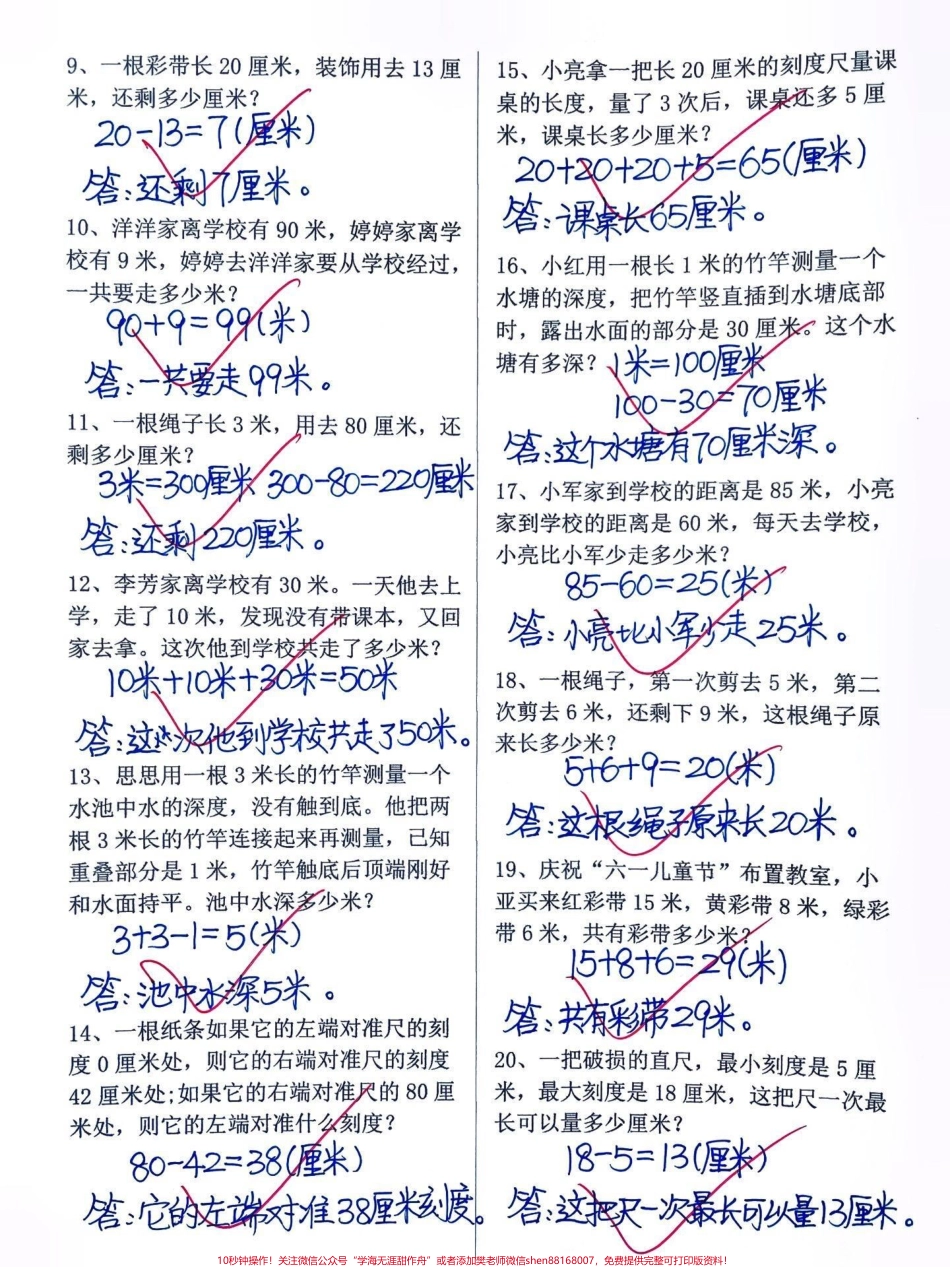 9、一根彩带长 20 厘米，装饰用去 13 厘
米，还剩多少厘米？
20-13=7(厘米)
答:还剩7厘米。
10、洋洋家离学校有 90 米，婷婷家离学
校有 9 米，婷婷去洋洋家要从学校经过，
一共要走多少米？
90+9=99(米)
答:一共要走99米。
11、一根绳子长 3 米，用去 80 厘米，还
剩多少厘米？
3米=300厘米 300-80=220厘米
答:还剩220厘米。
12、李芳家离学校有 30 米。一天他去上
学，走了 10 米，发现没有带课本，又回
家去拿。这次他到学校共走了多少米？
10米+10米+30米=50米
答:这次他到学校共走了50米。
13、思思用一根 3 米长的竹竿测量一个
水池中水的深度，没有触到底。他把两
根 3 米长的竹竿连接起来再测量，已知
重叠部分是 1 米，竹竿触底后顶端刚好
和水面持平。池中水深多少米？
3+3-1=5(米)
答:池中水深5米。
14、一根纸条如果它的左端对准尺的刻
度 0 厘米处，则它的右端对准尺的刻度
42 厘米处;如果它的右端对准尺的 80 厘
米处，则它的左端对准什么刻度？
80-42=38(厘米)
答:它的左端对准38厘米刻度。
15、小亮拿一把长 20 厘米的刻度尺量课
桌的长度，量了 3 次后，课桌还多 5 厘
米，课桌长多少厘米？
20+20+20+5=65(厘米)
答:课桌长65厘米。
16、小红用一根长 1 米的竹竿测量一个
水塘的深度，把竹竿竖直插到水塘底部
时，露出水面的部分是 30 厘米。这个水
塘有多深？ 1米=100厘米
100-30=70厘米
答:这个水塘有70厘米深。
17、小军家到学校的距离是 85 米，小亮
家到学校的距离是 60 米，每天去学校，
小亮比小军少走多少米？
85-60=25(米)
答:小亮比小军少走25米。
18、一根绳子，第一次剪去 5 米，第二
次剪去 6 米，还剩下 9 米，这根绳子原
来长多少米？
5+6+9=20(米)
答:这根绳子原来长20米。
19、庆祝“六一儿童节”布置教室，小
亚买来红彩带 15 米，黄彩带 8 米，绿彩
带 6 米，共有彩带多少米？
15+8+6=29(米)
答:共有彩带29米。
20、一把破损的直尺，最小刻度是 5 厘
米，最大刻度是 18 厘米，这把尺一次最
长可以量多少厘米？
18-5=13(厘米)
答:这把尺一次最长可以量13厘米。
10秒钟操作！关注微信公众号“学海无涯甜作舟”或者添加樊老师微信shen88168007，免费提供完整可打印版资料！